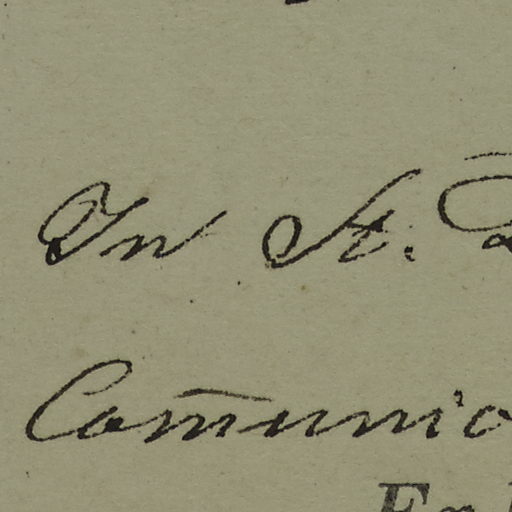 In St.
Com̅unio